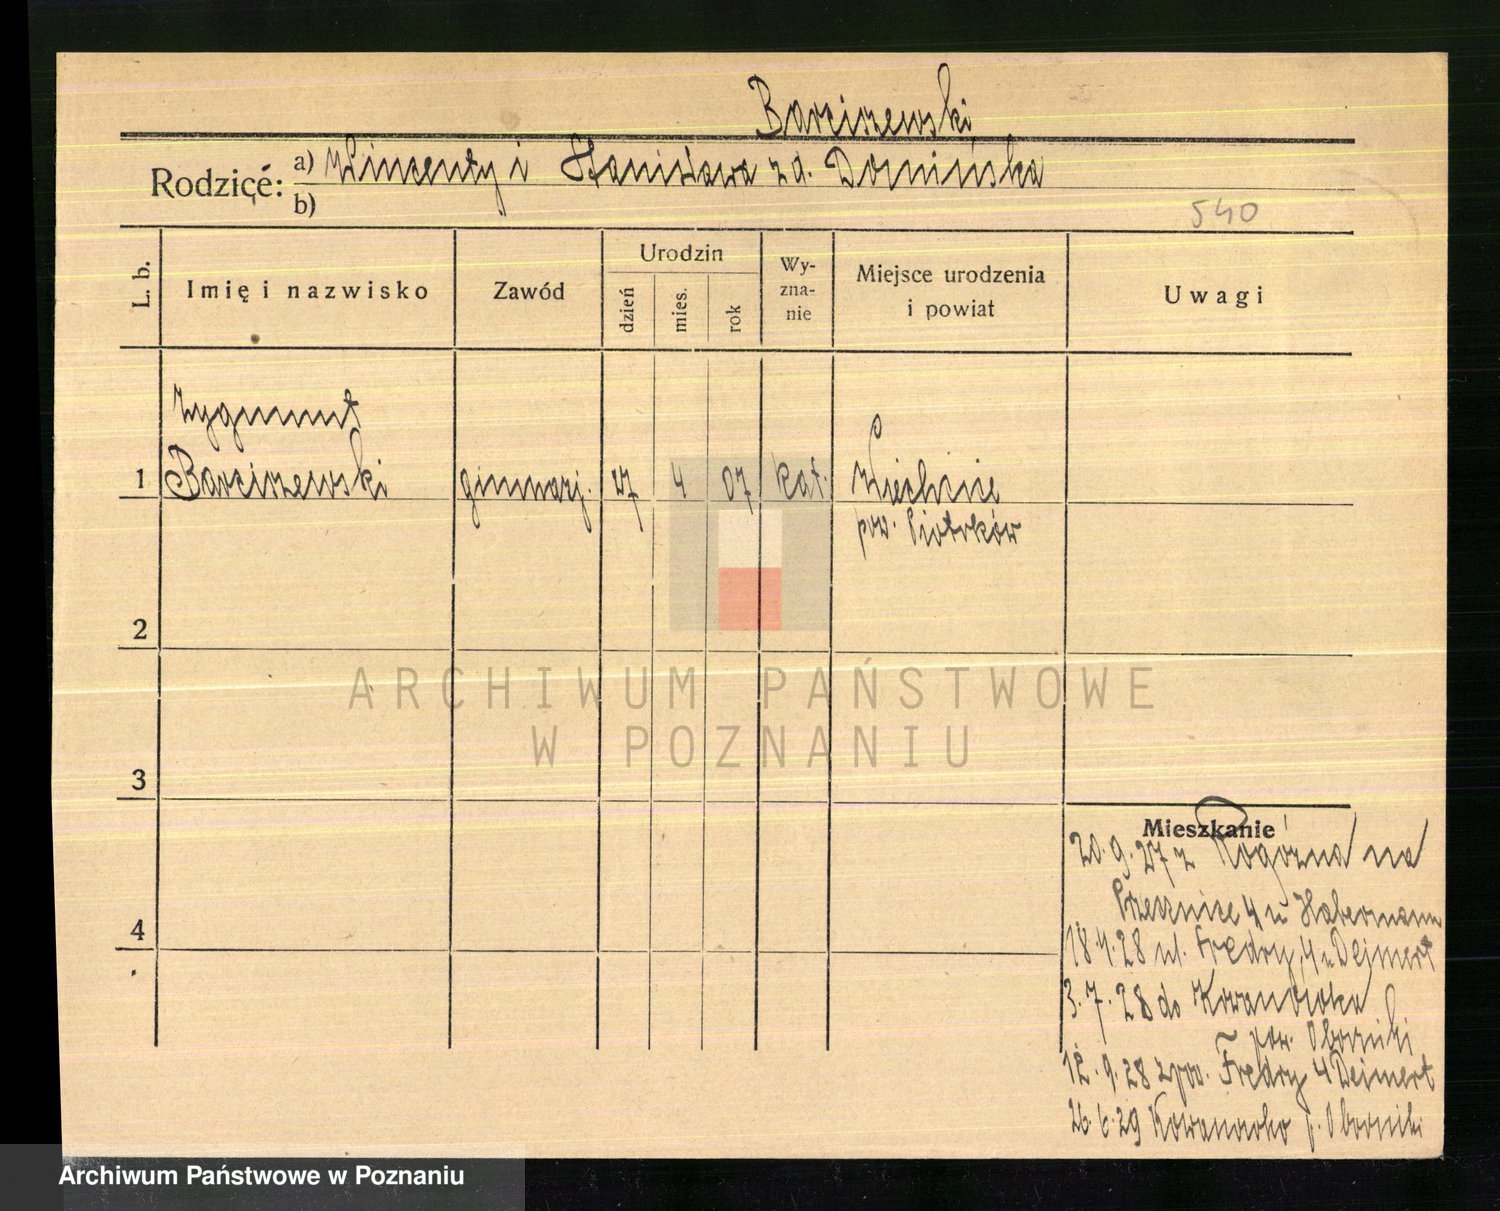 Barciszewski
Rodzice: a) Wincenty i Stanisława z d. Domińska
b)
540
L. b.
Imię i nazwisko
Zawód
Urodzin
dzień
mies.
rok
Wy-
zna-
nie
Miejsce urodzenia
i powiat
Uwagi
Zygmunt
1 Barciszewski gimnazj. 27 4 07 kat.
pow. Piotrków
2
3
4
ARCHIWUM PAŃSTWOWE
W POZNANIU
Mieszkanie
20.9.27 z Rogoźna na
4 u Habermann
18.4.28 ul. Fredry 4 u Deimert
3.7.28 do Kowanówka
pow. Oborniki
12.9.28 z pow. Fredry 4 Deimert
26.6.29 Kowanówko p. Oborniki
Archiwum Państwowe w Poznaniu